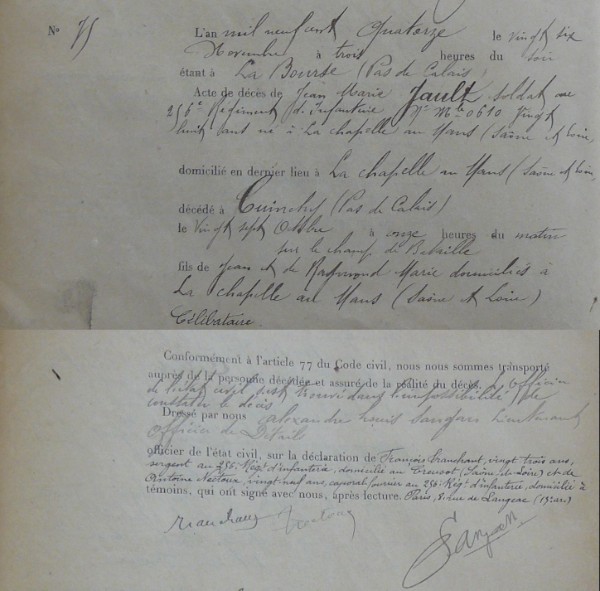 N° 75
L'an mil neuf cent Quatorze le vingt six
Novembre à trois heures du soir
étant à La Bourse (Pas de Calais)
Acte de décès de Jean Marie Jault soldat au
256e Régiment d'Infanterie N° Mle 0610 Vingt
huit ans né à La chapelle au Mans (Saône et Loire,
domicilié en dernier lieu à La chapelle au Mans (Saône et Loire,
décédé à Cuinchy (Pas de Calais)
le Vingt sept Octobre à onze heures du matin
sur le champ de Bataille
fils de Jean et de Raymond Marie domiciliés à
La chapelle au Mans (Saône et Loire)
Célibataire
Conformément à l'article 77 du Code civil, nous nous sommes transporté
auprès de la personne décédée et assuré de la réalité du décès. L'officier
de l'état civil s'est trouvé dans l'impossibilité de
constater le décès
Dressé par nous Alexandre Louis Sanson Lieutenant
officier de Détail
officier de l'état civil, sur la déclaration de François Cranchant, vingt trois ans,
sergent au 256e Régt d'infanterie, domicilié au Creusot (Saône et Loire) et de
Antoine Nectoux, vingt neuf ans, caporal fourrier au 256 Régt d'infanterie, domicilié à
témoins, qui ont signé avec nous, après lecture. Paris, 8, rue de Langeac (15e arr)
Nectoux
Sanson